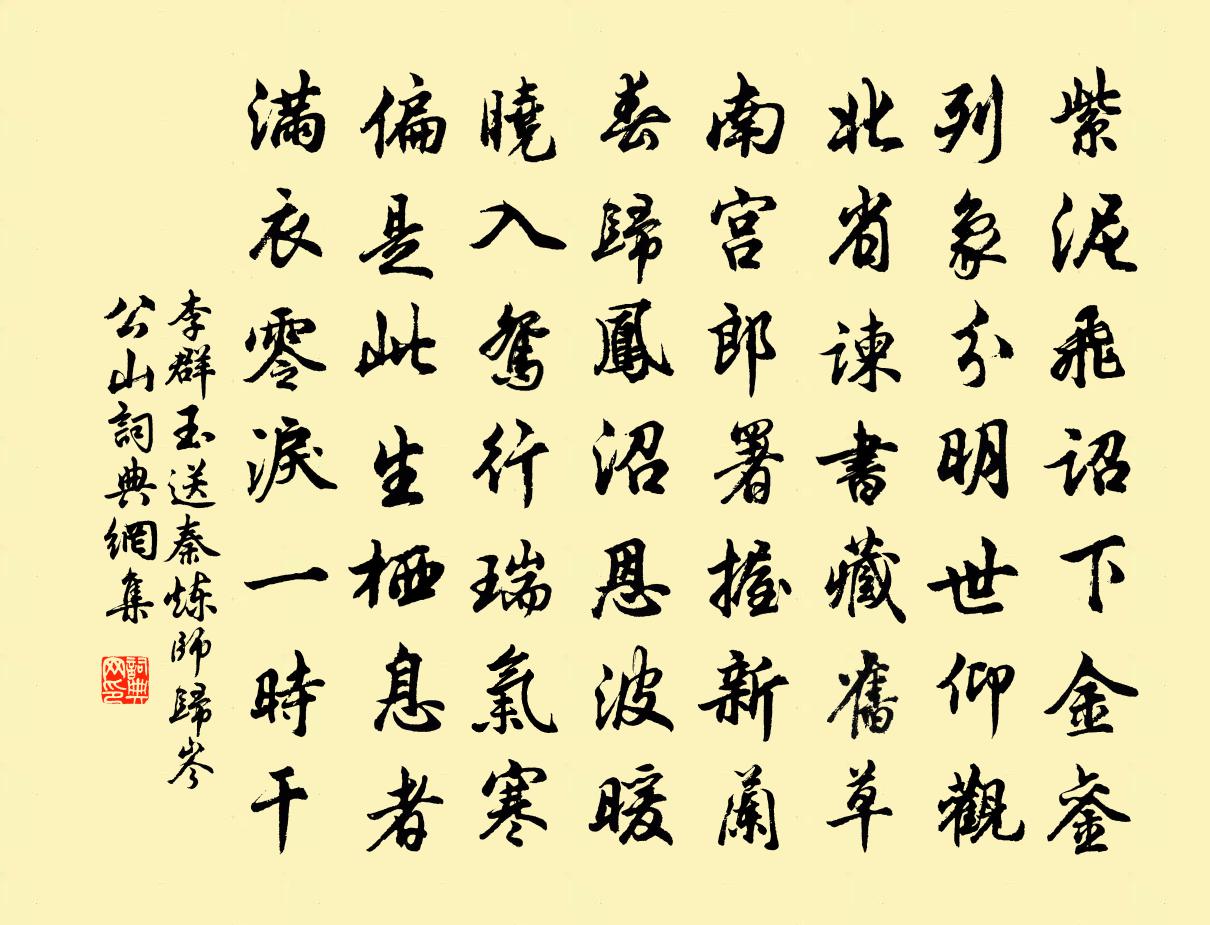 紫泥飛詔下金銮
列象分明世仰觀
北省諫書藏舊草
南宮郎署握新蘭
春歸鳳沼恩波暖
曉入鴛行瑞氣寒
偏是此生栖息者
滿衣零淚一時干
李群玉送秦炼師歸岑
公山詞典網集
詞典
网印